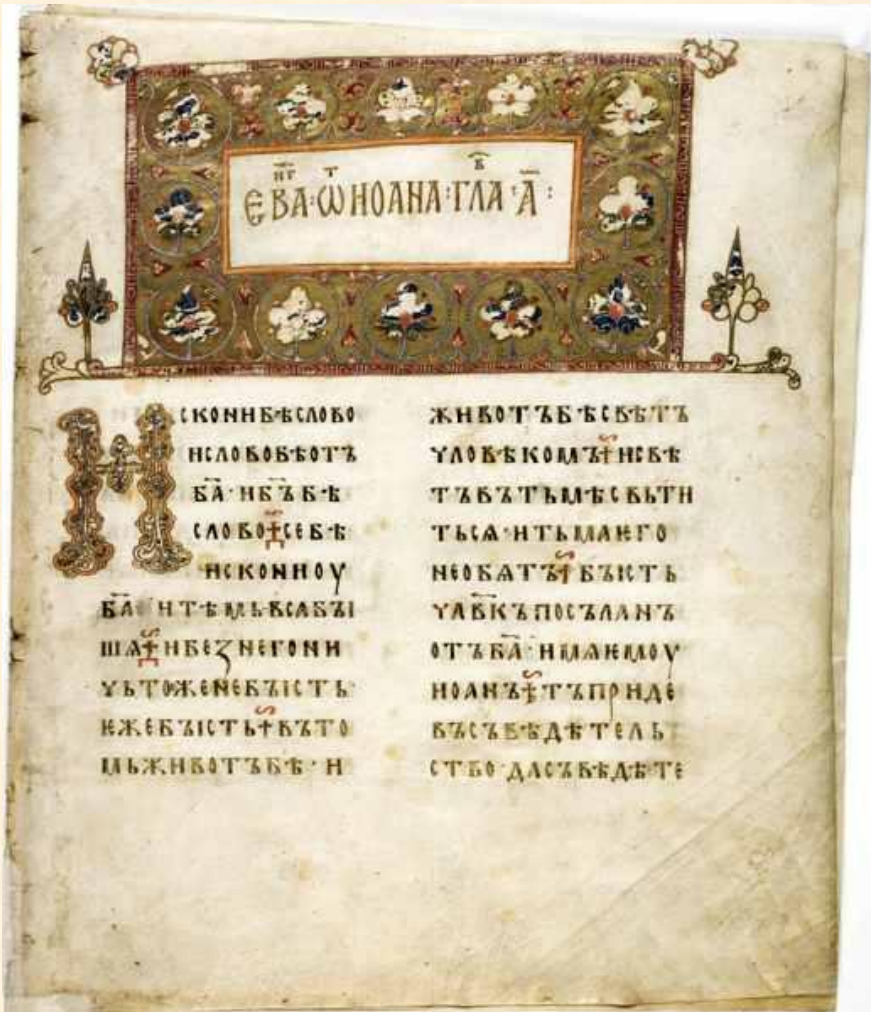 ЕВАⷩ҇ⷢ·Ѡⷮ ИОАНА·ГЛАⷡ҇·А҃:
ИСКОНИБѢСЛОВО
ИСЛОВОБѢОТЪ
БА҃·ИБЪ҃БѢ
СЛОВО·СЕБѢ
ИСКОНИОУ
БА҃·ИТѢМЬВСѦБꙐ
ШѦ·ИБЕЗНЕГОНИ
ЧЬТОЖЕНЕБꙐСТЬ·
ѤЖЕБꙐСТЬ·ВЪТО
МЬЖИВОТЪБѢ·И
ЖИВОТЪБѢСВѢТЪ
ЧЛОВѢКОМЪ·ИСВѢ
ТЪВЪТЬМѢСВЬТИ
ТЬСѦ·ИТЬМАѤГО
НЕОБѦТЪ·БꙐСТЬ
ЧЛ҃ВКЪПОСЪЛАНЪ
ОТЪБА҃·ИМѦѤМОУ
ИОАНЪ·ТЪПРИДЕ
ВЪСЪВѢДѢТЕЛЬ
СТВО·ДАСЪВѢДѢТЕ